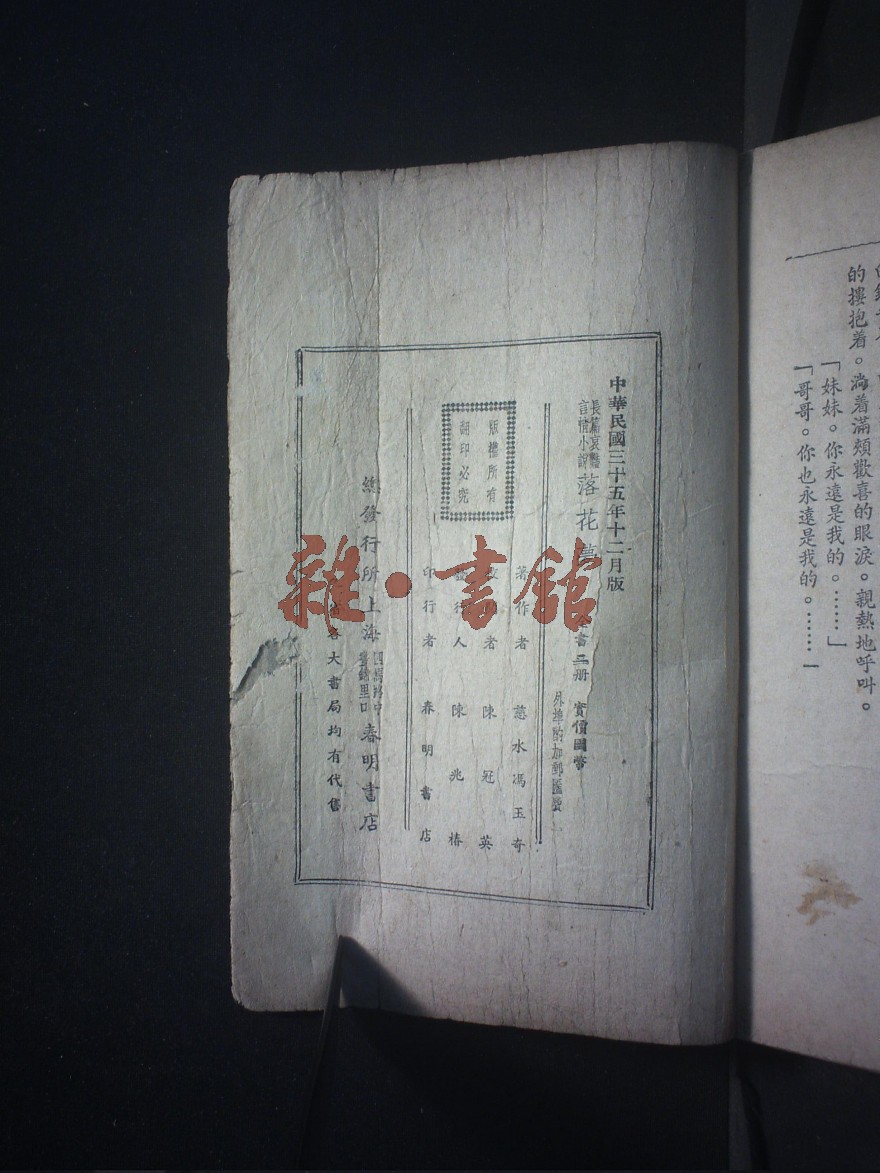 的摟抱着。淌着滿頰歡喜的眼淚。親熱地呼叫。
「妹妹。你永遠是我的。………」
「哥哥。你也永遠是我的。………
中華民國三十五年十二月版
長篇哀豔
言情小說
落花
書二册
實價國幣
外埠酌加郵匯費
著作者 慈水馮玉奇
者 陳冠英
人 陳兆椿
印行者 春明書店
版權所有
翻印必究
總發行所上海
春明書店
各大書局均有代售
雜·書館